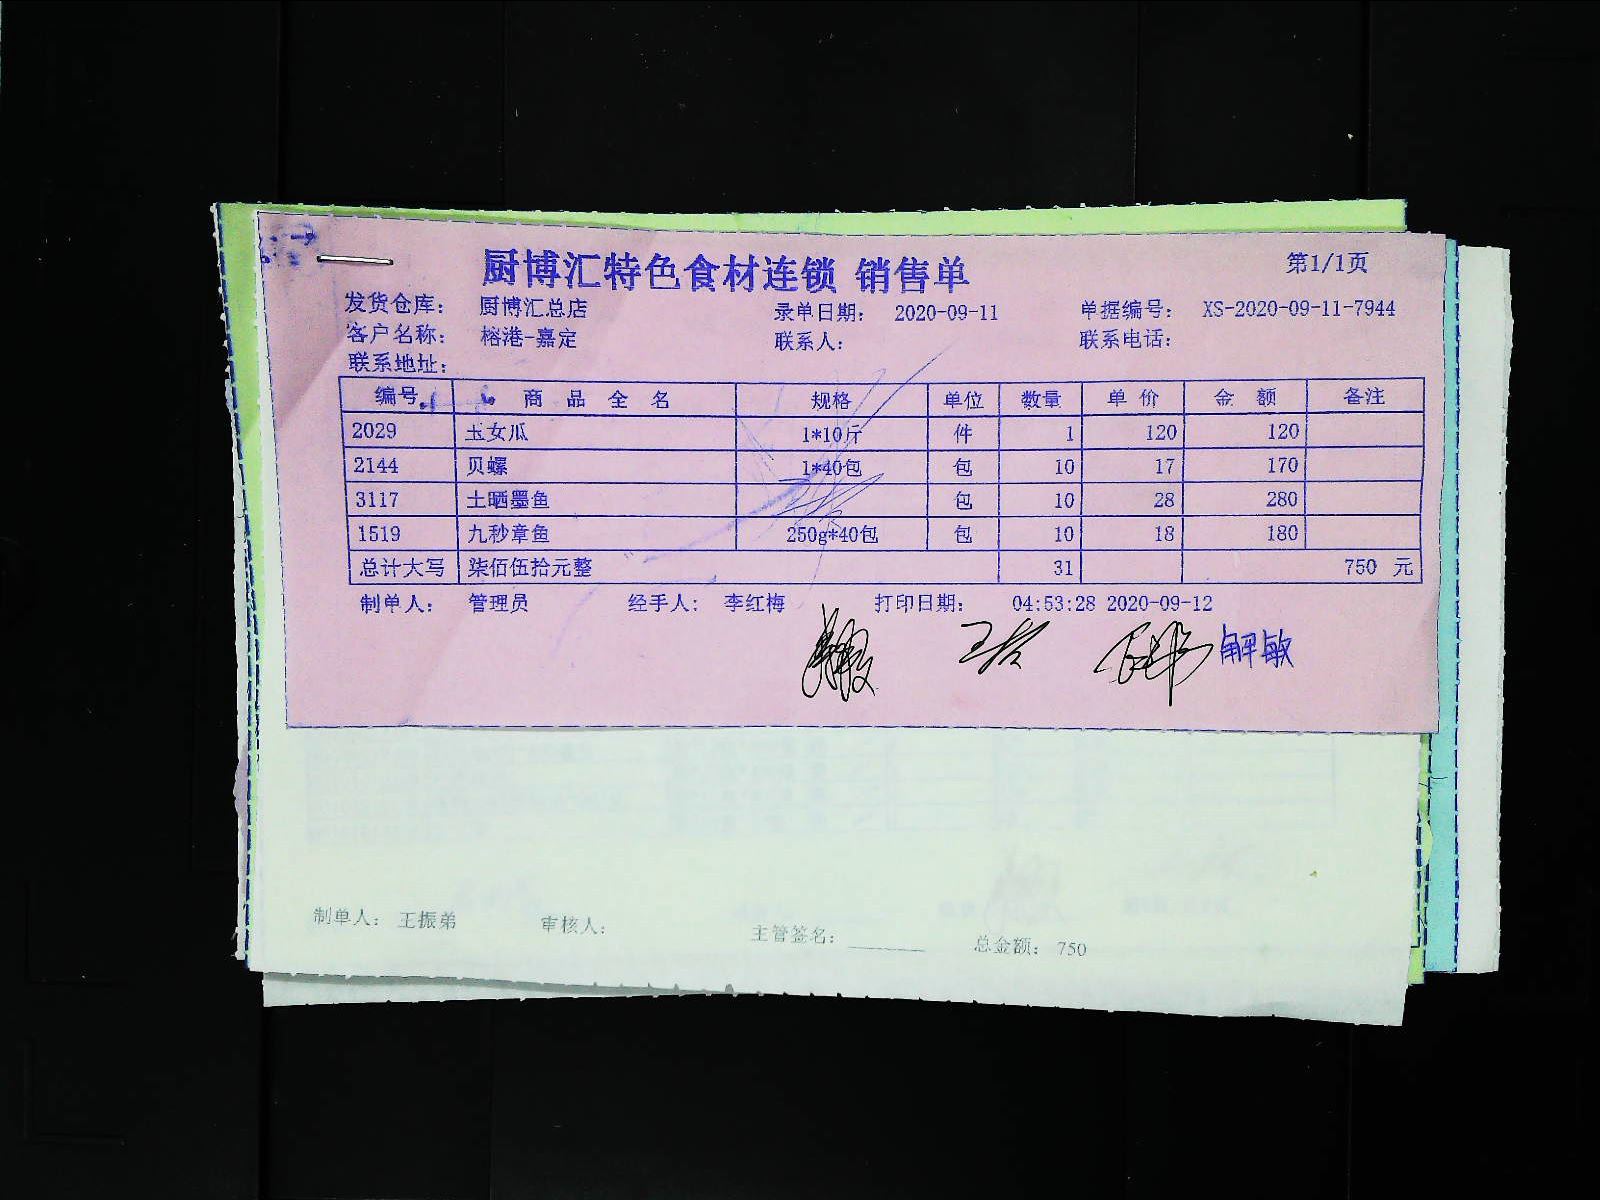 厨博汇特色食材连锁 销售单 第1/1页
发货仓库： 厨博汇总店 录单日期： 2020-09-11 单据编号： XS-2020-09-11-7944
客户名称： 榕港-嘉定 联系人： 联系电话：
联系地址：
编号 商品全名 规格 单位 数量 单价 金额 备注
2029 玉女瓜 1*10斤 件 1 120 120
2144 贝螺 1*40包 包 10 17 170
3117 土晒墨鱼 包 10 28 280
1519 九秒章鱼 250g*40包 包 10 18 180
总计大写 柒佰伍拾元整 31 750 元
制单人： 管理员 经手人： 李红梅 打印日期： 04:53:28 2020-09-12
解敏
制单人： 王振弟 审核人： 主管签名： 总金额： 750